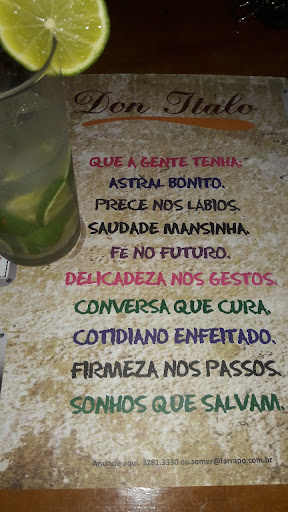 Don Italo
QUE A GENTE TENHA:
ASTRAL BONITO.
PRECE NOS LÁBIOS.
SAUDADE MANSINHA.
FÉ NO FUTURO.
DELICADEZA NOS GESTOS.
CONVERSA QUE CURA.
COTIDIANO ENFEITADO.
FIRMEZA NOS PASSOS.
SONHOS QUE SALVAM.
Anuncie aqui. 3281.3330 ou somer@farrapo.com.br